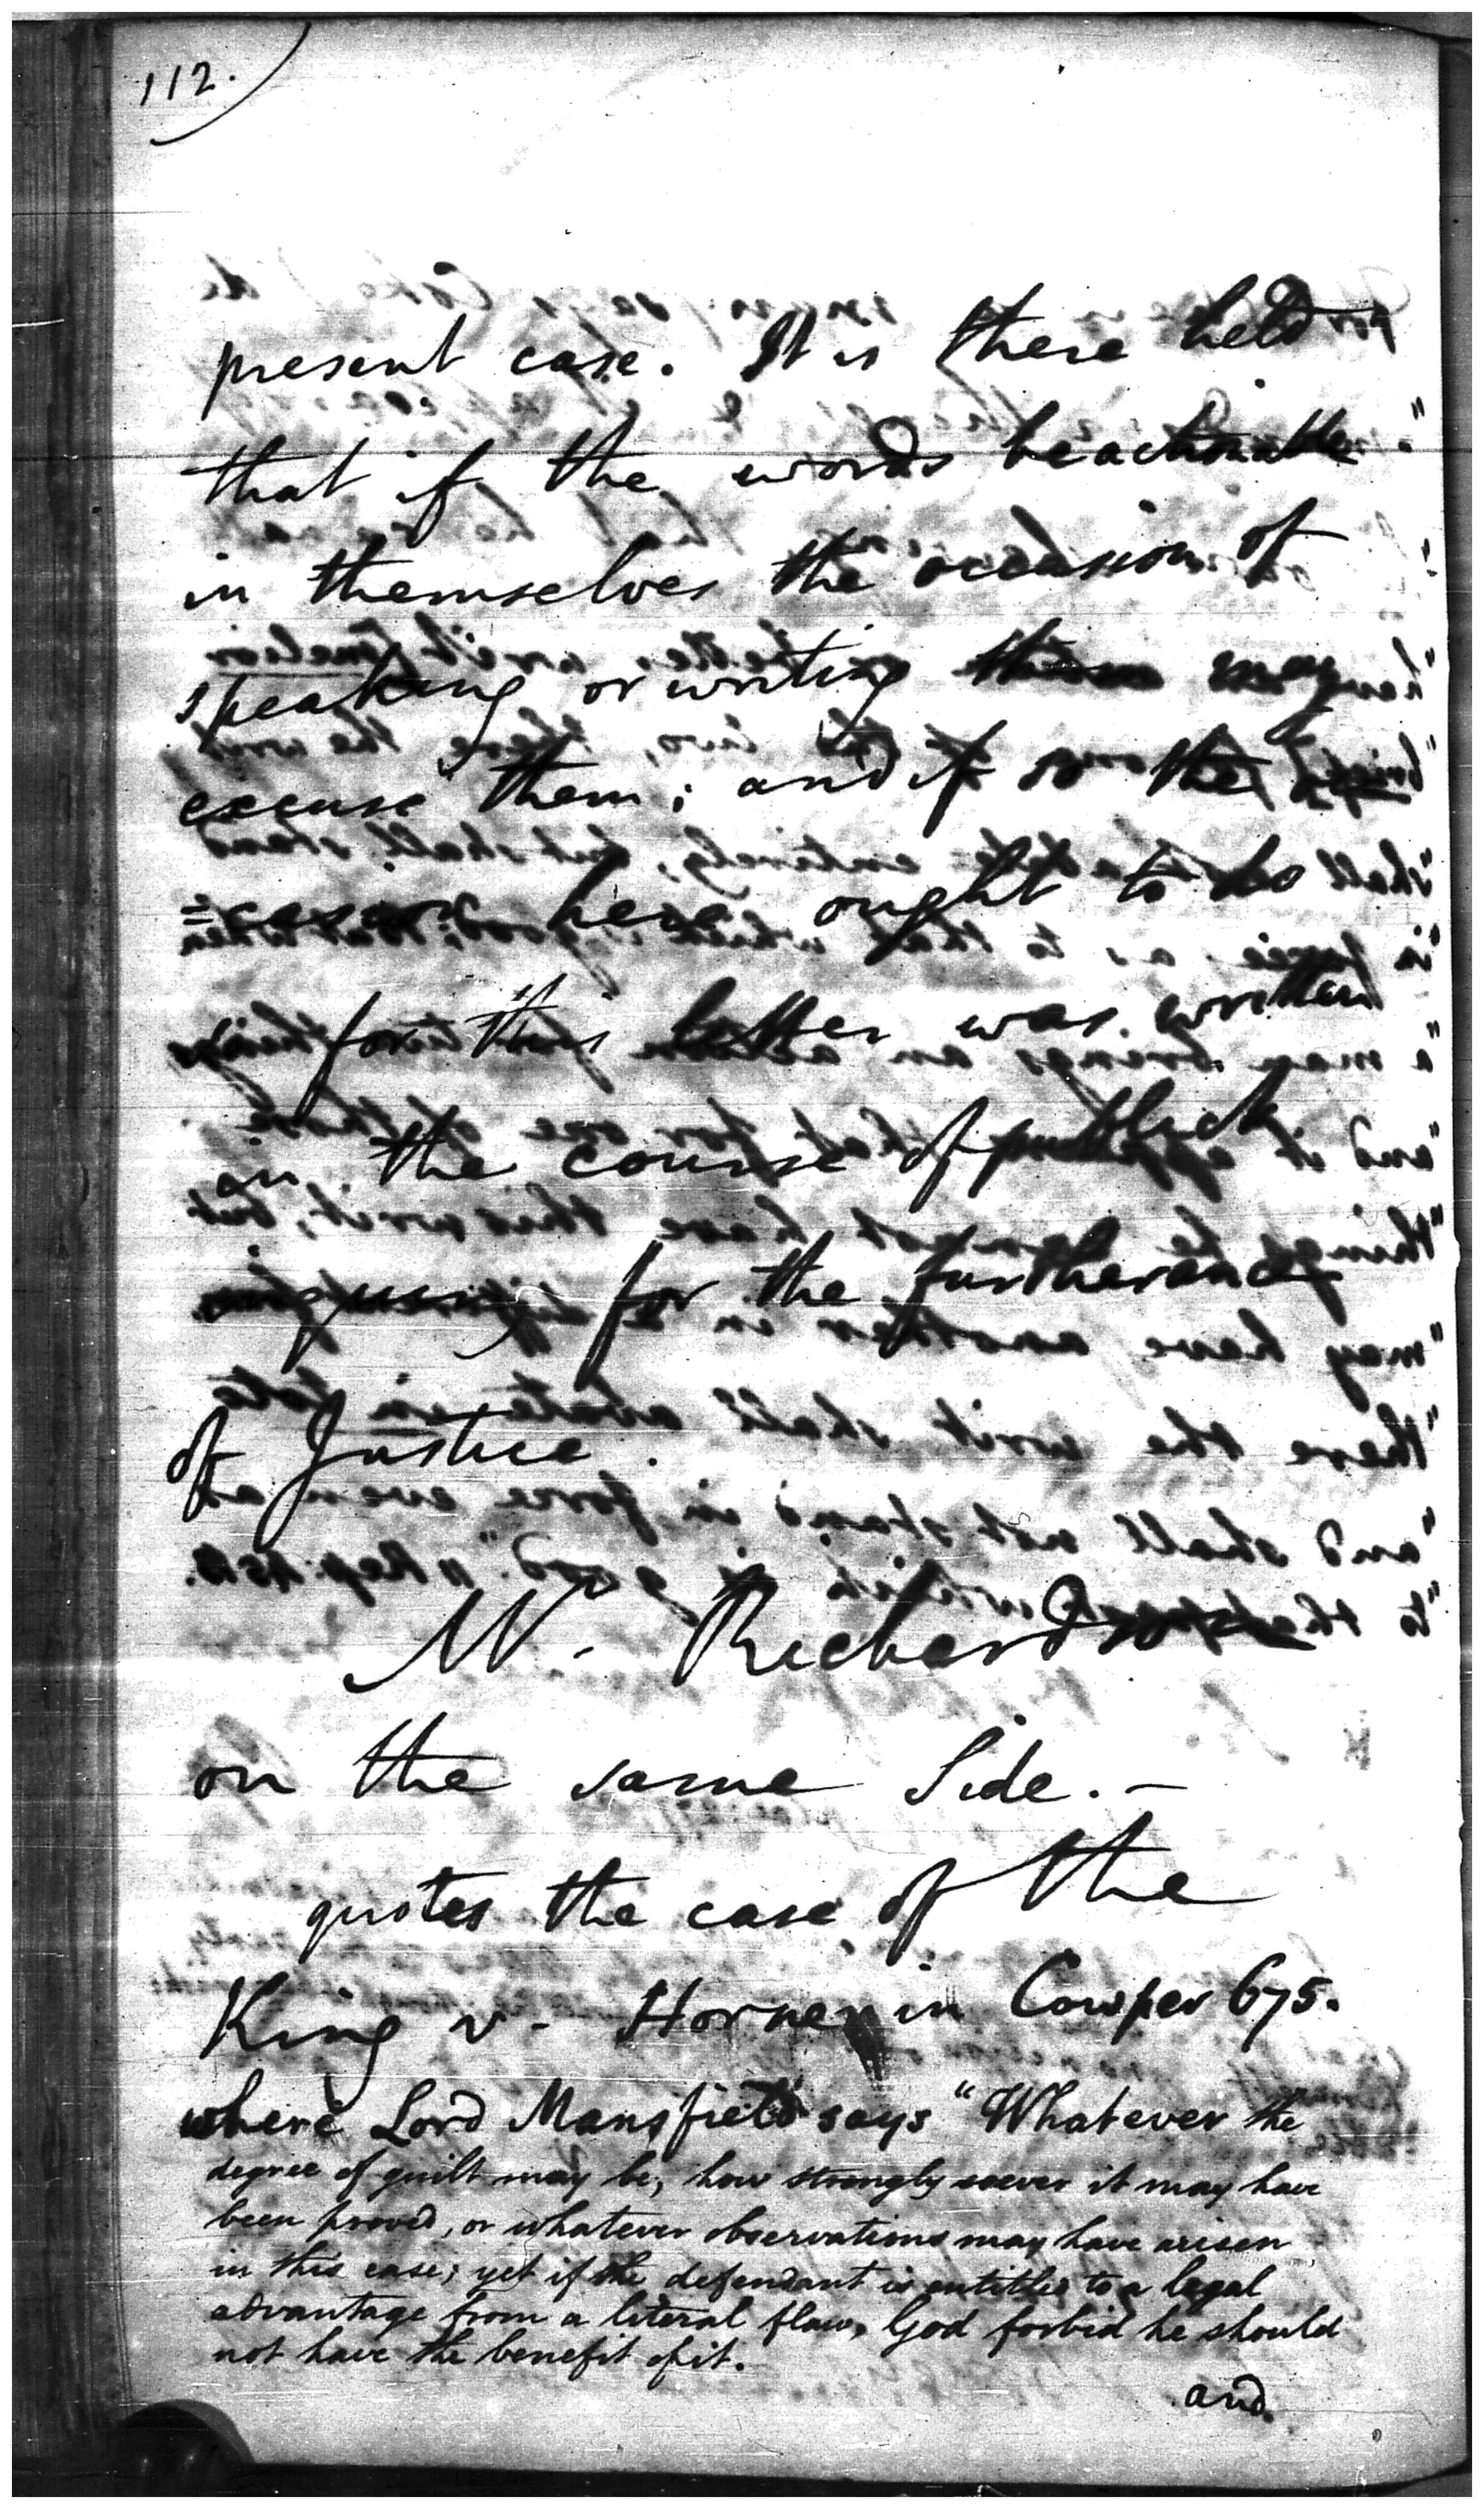 112.
present case. It is there held
that if the words be actionable
in themselves the occasion of
speaking or writing them may
excuse them; and if so the
reason here ought to do
= for this letter was written
in the course of publick
for the furtherance
of Justice.
Mr. Richardson
on the same Side. —
quotes the case of the
King v. Horne in Cowper 675.
where Lord Mansfield says "Whatever the
degree of guilt may be, how strongly soever it may have
been proved, or whatever observations may have arisen
in this case; yet if the defendant is entitled to a legal
advantage from a literal flaw, God forbid he should
not have the benefit of it.
and